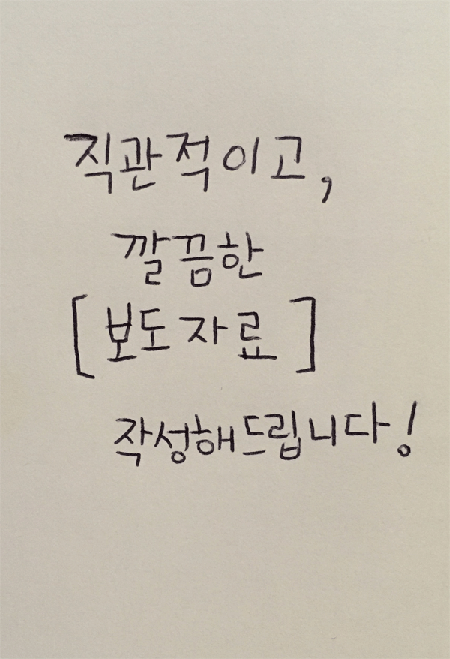 직관적이고,
깔끔한
[보도자료]
작성해드립니다!